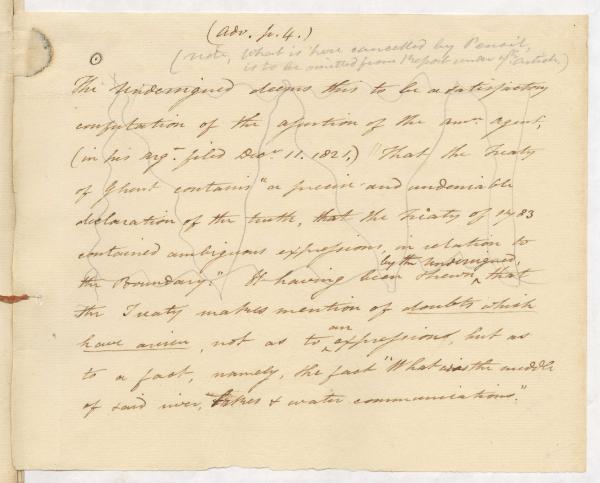 (Adv. p. 4.)
(Note, What is here cancelled by Pencil,
is to be omitted from Report under 6th article)
The Undersigned deems this to be a satisfactory
confutation of the assertion of the Amn. Agent,
(in his argt. filed Decr. 11. 1821,) That the Treaty
of Ghent contains "a precise and undeniable
declaration of the truth, that the Treaty of 1783
contained ambiguous expressions, in relation to
the Boundary." It having been shewn by the Undersigned, that
the Treaty makes mention of doubts which
have arisen, not as to an expressions, but as
to a fact, namely, the fact "What was the middle
of said river, lakes & water communications."